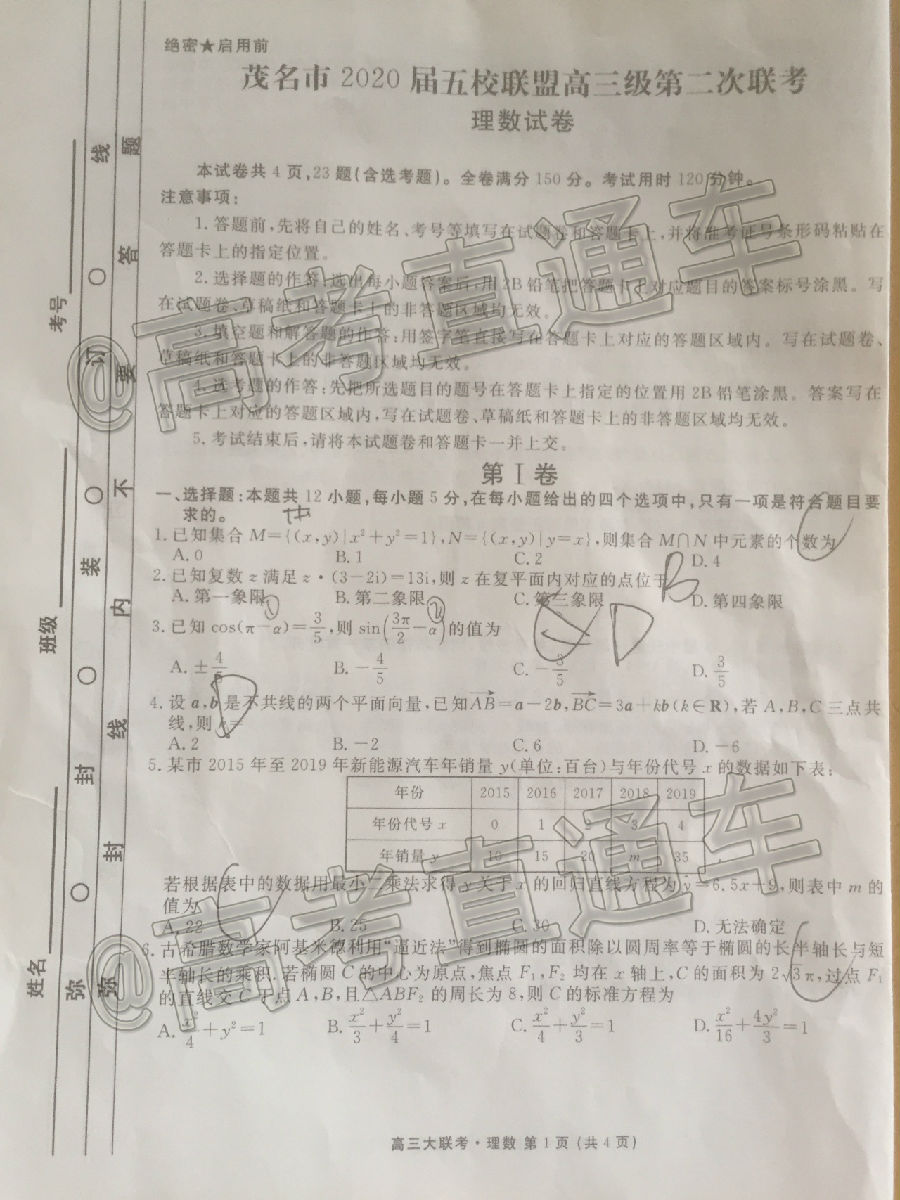 绝密★启用前
茂名市2020届五校联盟高三级第二次联考
理数试卷
本试卷共4页,23题(含选考题)。全卷满分150分。考试用时120分钟。
注意事项:
1.答题前,先将自己的姓名、考号等填写在试题卷和答题卡上,并将准考证号条形码粘贴在
答题卡上的指定位置。
2.选择题的作答:选出每小题答案后,用2B铅笔把答题卡上对应题目的答案标号涂黑。写
在试题卷、草稿纸和答题卡上的非答题区域均无效。
3.填空题和解答题的作答:用签字笔直接写在答题卡上对应的答题区域内。写在试题卷、
草稿纸和答题卡上的非答题区域均无效。
4.选考题的作答:先把所选题目的题号在答题卡上指定的位置用2B铅笔涂黑。答案写在
答题卡上对应的答题区域内,写在试题卷、草稿纸和答题卡上的非答题区域均无效。
5.考试结束后,请将本试题卷和答题卡一并上交。
第Ⅰ卷
一、选择题:本题共12小题,每小题5分,在每小题给出的四个选项中,只有一项是符合题目要
求的。
1.已知集合M={(x,y)|x²+y²=1},N={(x,y)|y=x},则集合M∩N中元素的个数为 C
A.0 B.1 C.2 D.4
2.已知复数z满足z·(3-2i)=13i,则z在复平面内对应的点位于 B
A.第一象限 B.第二象限 C.第三象限 D.第四象限
3.已知cos(π-α)=3/5,则sin(3π/2-α)的值为 D
A.±4/5 B.-4/5 C.-3/5 D.3/5
4.设a,b是不共线的两个平面向量,已知AB=a-2b,BC=3a+kb(k∈R),若A,B,C三点共
线,则k= D
A.2 B.-2 C.6 D.-6
5.某市2015年至2019年新能源汽车年销量y(单位:百台)与年份代号x的数据如下表:
年份 2015 2016 2017 2018 2019
年份代号x 0 1 2 3 4
年销量y 10 15 20 m 35
若根据表中的数据用最小二乘法求得y关于x的回归直线方程为ŷ=6.5x+9,则表中m的
值为 C
A.22 B.25 C.30 D.无法确定
6.古希腊数学家阿基米德利用“逼近法”得到椭圆的面积除以圆周率等于椭圆的长半轴长与短
半轴长的乘积.若椭圆C的中心为原点,焦点F₁,F₂均在x轴上,C的面积为2√3π,过点F₁
的直线交C于点A,B,且△ABF₂的周长为8,则C的标准方程为 C
A.x²/4+y²=1 B.x²/3+y²/4=1 C.x²/4+y²/3=1 D.x²/16+4y²/3=1
高三大联考·理数 第1页(共4页)
姓名 班级 考号
弥 封 装 订 线
弥 封 线 内 不 要 答 题
@高考直通车
@高考直通车